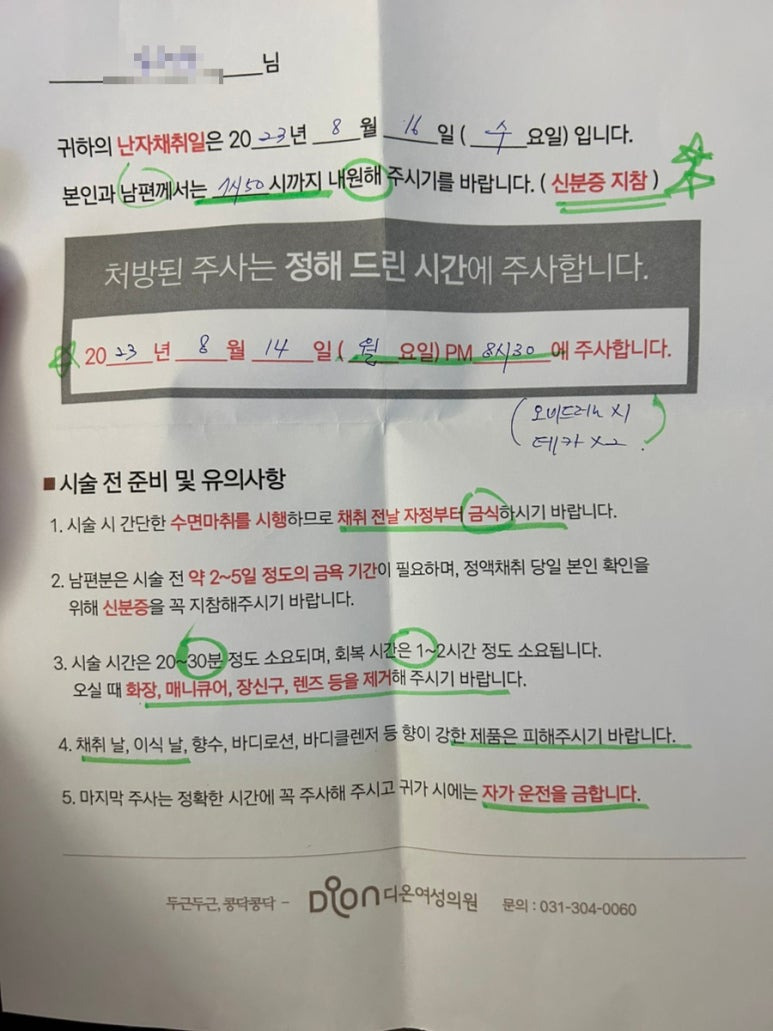 님
귀하의 난자채취일은 2023년 8월 16일 (수요일) 입니다.
본인과 남편께서는 7시50시까지 내원해 주시기를 바랍니다. ( 신분증 지참 )
처방된 주사는 정해 드린 시간에 주사합니다.
2023년 8월 14일 (월요일) PM 8시30에 주사합니다.
(오비드렐 x1
데카 x2)
■ 시술 전 준비 및 유의사항
1. 시술 시 간단한 수면마취를 시행하므로 채취 전날 자정부터 금식하시기 바랍니다.
2. 남편분은 시술 전 약 2~5일 정도의 금욕 기간이 필요하며, 정액채취 당일 본인 확인을
위해 신분증을 꼭 지참해주시기 바랍니다.
3. 시술 시간은 20~30분 정도 소요되며, 회복 시간은 1~2시간 정도 소요됩니다.
오실 때 화장, 매니큐어, 장신구, 렌즈 등을 제거해 주시기 바랍니다.
4. 채취 날, 이식 날, 향수, 바디로션, 바디클렌저 등 향이 강한 제품은 피해주시기 바랍니다.
5. 마지막 주사는 정확한 시간에 꼭 주사해 주시고 귀가 시에는 자가 운전을 금합니다.
두근두근, 콩닥콩닥 - Dion 디온여성의원 문의 : 031-304-0060